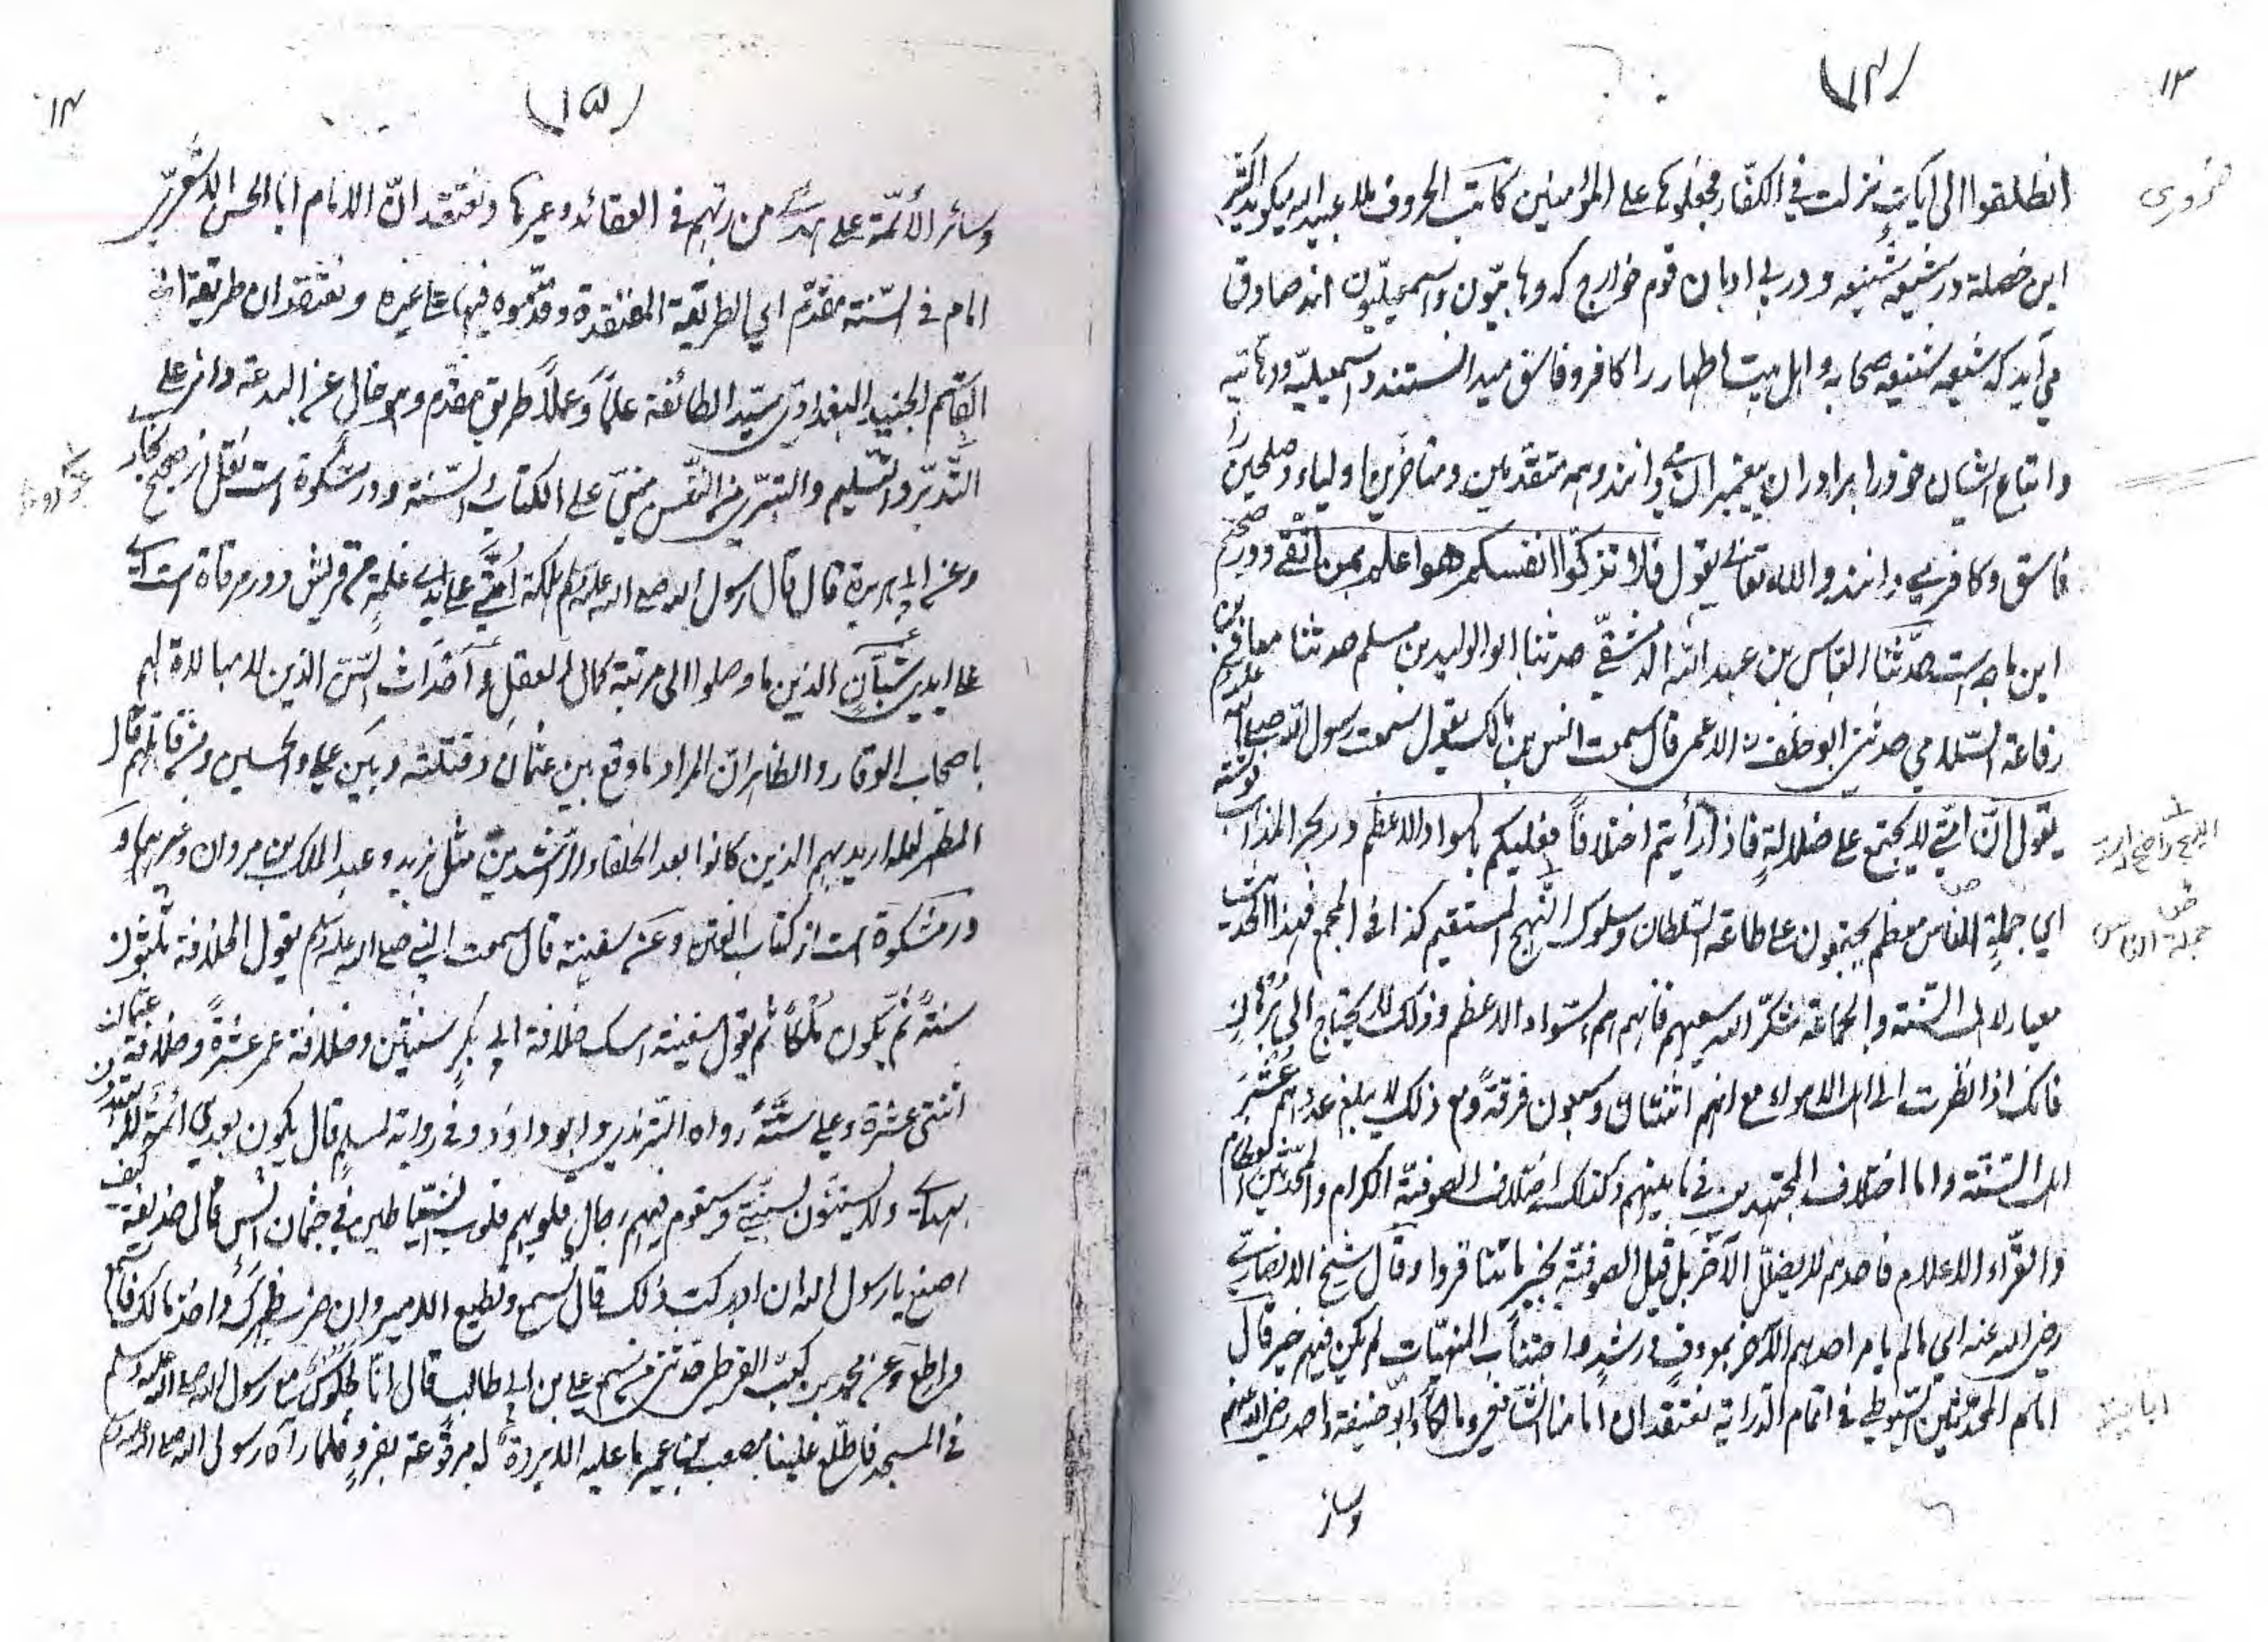 (١٤)
١٣
انطلقوا الى ايات نزلت في الكفّار فجعلوها على المؤمنين كاتب الحروف ملا عبيد الله ميكويد اكثر
ضروری
اين خصلة در شيعه شنيعه و در بى اديان قوم خوارج كه وهابيّون واسمعيليّون اند صادق
مى آيد كه شيعه شنيعه صحابه واهل بيت اطهار را كافر و فاسق ميدانستند واسمعيليّه ووهابيه
واتباع ايشان خود را برادران پيغمبران مى دانند وهمه متقدمين ومتاخرين اولياء وصلحين را
فاسق وكافر مى دانند والله تعالى يقول فلا تزكّوا انفسكم هوا علم بمن اتّقى ودر صحيح
ابن ماجه است حدّثنا العبّاس بن عبد الله الدمشقيّ حدثنا ابو الوليد بن مسلم حدثنا معان بن
رفاعة السّلامي حدثني ابو خلف الاعمى قال سمعت انس بن مالك يقول سمعت رسول الله صلى الله عليه وسلم
يقول انّ امّتي لا يجتمع على ضلالةٍ فاذا رأيتم اختلافاً فعليكم بالسواد الاعظم در بحر المذاهب نوشته
اي جملة الناس معظم يجتمعون على طاعة السّلطان وسلوك النّهج المستقيم كذا في المجمع فهذا الحديث
جملة الناس
معيار لاهل السّنة والجماعة شكّر الله سعيهم فانهم هم السّواد الاعظم وذلك لا يحتاج الى برهان
فانك اذا نظرت الى اهل الاهواء مع انهم اثنتان وسبعون فرقةً ومع ذلك لا يبلغ عددهم عُشْر
اهل السّنّة واما اختلاف المجتهدين في ما بينهم وكذلك اختلاف الصوفيّة الكرام والمحدّثين العظام
والقرّاء الاعلام فاحدهم لا يضلّل الآخر بل قيل الصوفيّة بخير ما تنافروا وقال شيخ الانصارى
رضى الله عنه اي ما لم يامر احدهم الآخر بمعروف ورشد واجتناب المنهيّات لم يكن فيهم خير قال
امام المحدّثين السّيوطي في اتمام الدراية نعتقد ان امامنا الشّافعى ومالكاً وابو حنيفة واحمد رضى الله عنهم
وسائر
(١٥)
١٤
وسائر الأئمّة على هدى من ربّهم في العقائد وغيرها ونعتقد انّ الامام ابا الحسن الاشعريّ
امام في السّنة مقدّم اي الطريقة المعتقدة وقدّموه فيها على غيره ونعتقد ان طريقة ابي
القاسم الجنيد البغدادي سيّد الطائفة علماً وعملاً طريق مقدّم وهو خال عن البدعة دائر على
التّدبّر والتّسليم والتبرّى من النّفس مبنيّ على الكتاب والسّنة ودر مشكوة است نقل از صحيح بخارى
وعن ابي هريرة قال قال رسول الله صلى الله عليه وسلم هلكة اُمّتي على يدي غلمةٍ من قريش ودر مرقاة است اى
على ايدي شبّانٍ الذين ما وصلوا الى مرتبة كمال العقل وأحداث السّن الذين لا مبالاة لهم
باصحاب الوقار والظاهر انّ المراد ما وقع بين عثمان وقتلته وبين علي والحسين ومن قاتلهم قال
المظهر لعله اريد بهم الذين كانوا بعد الخلفاء الراشدين مثل يزيد وعبد الملك بن مروان وغيرهما و
در مشكوة است از كتاب الفتن وعن سفينة قال سمعت النبي صلى الله عليه وسلم يقول الخلافة ثلثون
سنةً ثم يكون ملكاً ثم يقول سفينة امسك خلافة ابي بكرٍ سنتين وخلافة عمر عشرةً وخلافة عثمان
اثنتى عشرة وعلى ستّةً رواه التّرمذي وابو داؤد وفي رواية لمسلم قال يكون بعدي ائمّة لا يهتدون
بهداى ولا يستنّون بسنّتي وسيقوم فيهم رجال قلوبهم قلوب الشّياطين في جثمان انس قال حذيفة كيف
اصنع يا رسول الله ان ادركت ذلك قال تسمع وتطيع الامير وان ضرب ظهرك واخذ مالك فاسمع
واطع وعن محمد بن كعب القرظى حدثنى من سمع علي بن ابي طالب قال انّا لجلوس مع رسول الله صلى الله عليه وسلم
في المسجد فاطّلع علينا مصعب بن عمير ما عليه الا بردة له مرقوعة بفرو فلما رآه رسول الله صلى الله عليه وسلم